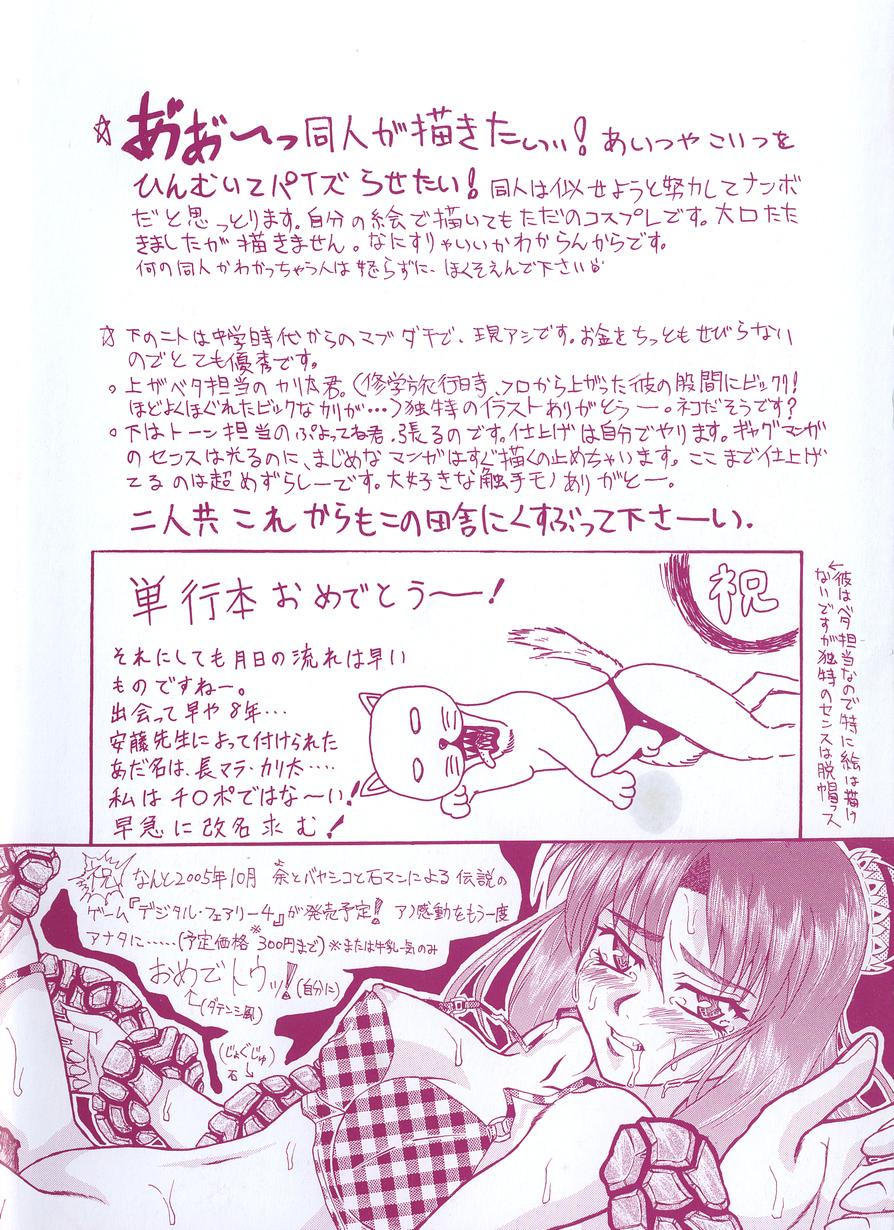 ☆ あ゙お゙〜っ同人が描きたいっ! あいつやこいつを
ひんむいてパイズらせたい! 同人は似せようと努力してナンボ
だと思っとります。自分の絵で描いてもただのコスプレです。大口たた
きましたが描きません。なにすりゃいいかわからんからです。
何の同人かわかっちゃう人は怒らずに、ほくそえんで下さい
☆ 下の二人は中学時代からのマブダチで、現アシです。お金をちっともせびらない
のでとても優秀です。
○ 上がベタ担当のカリ太君。(修学旅行時、フロから上がった彼の股間にビックリ!
ほどよくほぐれたビックなカリが…)独特のイラストありがとうー。ネコだそうです?
○ 下はトーン担当のぷよってね君、張るのです。仕上げは自分でやります。ギャグマンガ
のセンスは光るのに、まじめなマンガはすぐ描くの止めちゃいます。ここまで仕上げ
てるのは超めずらしーです。大好きな触手モノありがとー。
二人共これからもこの田舎にくすぶって下さーい。
←彼はベタ担当なので特に絵は描け
ないですが独特のセンスは脱帽ッス
祝
単行本おめでとう〜!
それにしても月日の流れは早い
ものですねー。
出会って早や8年…
安藤先生によって付けられた
あだ名は、長マラ・カリ太‥‥
私はチ○ポではな〜い!
早急に改名求む!
祝
なんと2005年10月 奈とバヤシコと石マンによる伝説の
ゲーム『デジタル・フェアリー4』が発売予定! アノ感動をもう一度
アナタに……(予定価格※300円まで)※または牛乳一気のみ
おめでトウッ!(自分に)
(ダテンシ風)
(じょぐじゅ)
石